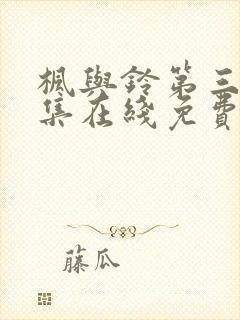 楓與鈴第三
集在綫免費
藤瓜